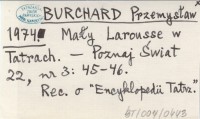 BURCHARD Przemysław
1974 Mały Larousse w
Tatrach. — Poznaj Świat
22, nr 3: 45-46.
Rec. o "Encyklopedii Tatr".